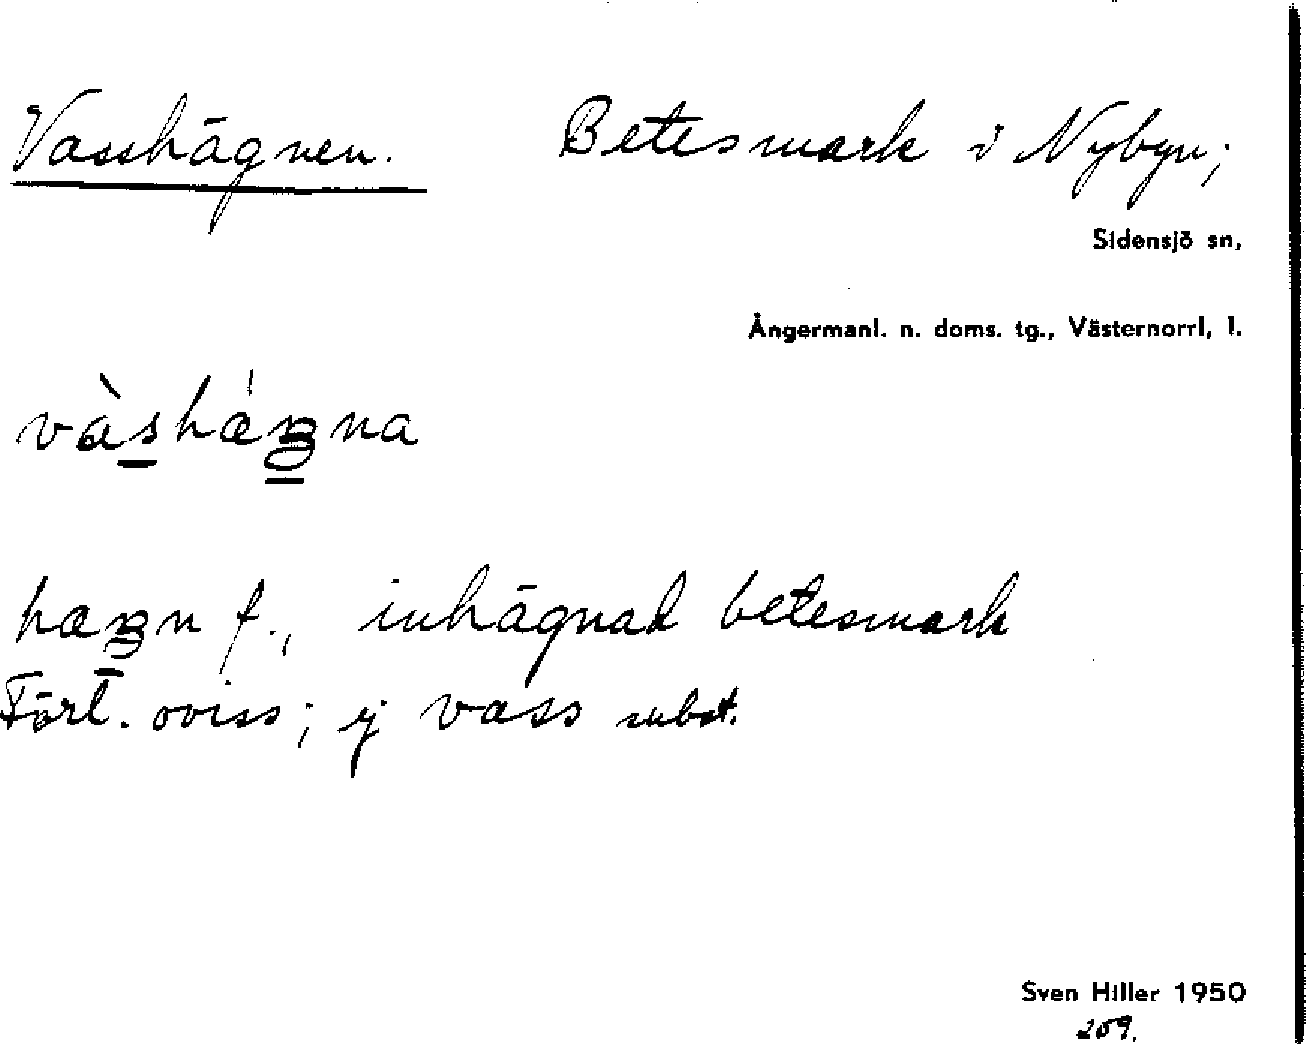 Vasshägnen. Betesmark i Nybyn;
Sidensjö sn,
Ångermanl. n. doms. tg., Västernorrl, l.
vàshæ̀ŋna
hæŋn f., inhägnad betesmark
Förl. oviss; ej vass subst.
Sven Hiller 1950
209.